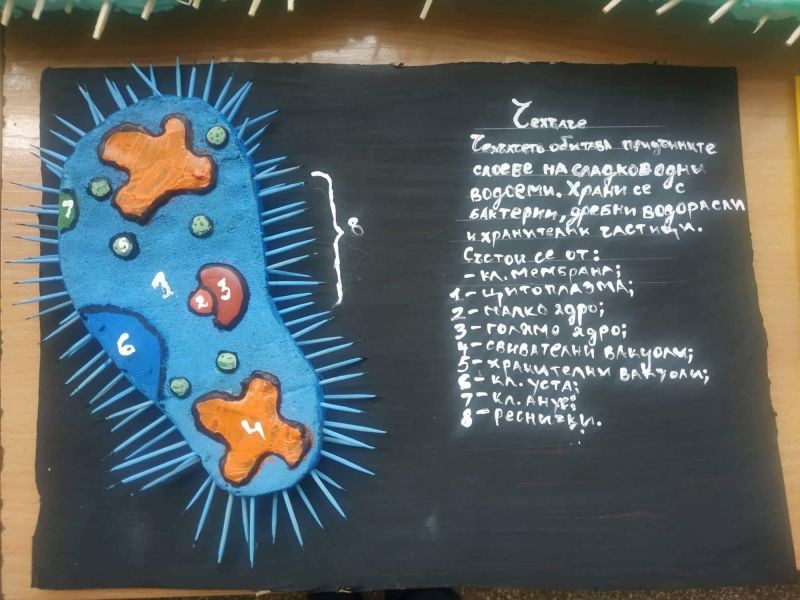 Чехълче
Чехълчето обитава придънните
слоеве на сладководни
водоеми. Храни се с
бактерии, дребни водорасли
и хранителни частици.
Състои се от:
- кл. мембрана;
1 - щитоплазма;
2 - малко ядро;
3 - голямо ядро;
4 - свивателни вакуоли;
5 - хранителни вакуоли;
6 - кл. уста;
7 - кл. анус;
8 - реснички.
7
5
1
2 3
6
4
8